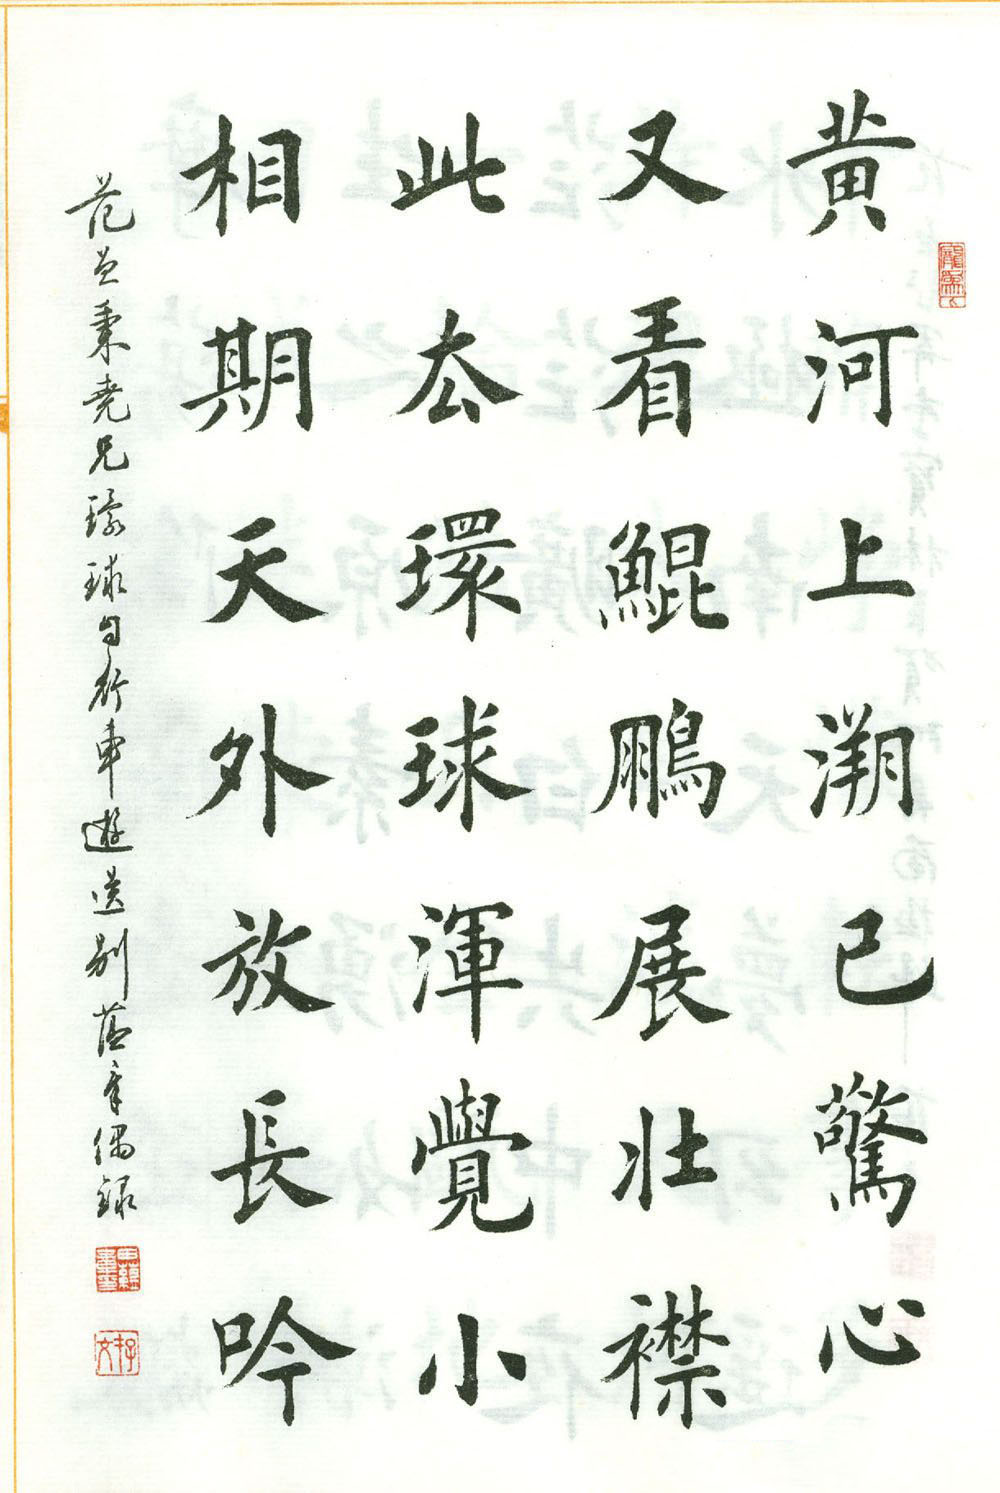 黄河上溯已驚心
又看鯤鵬展壯襟
此去環球渾覺小
相期天外放長吟
范曾秉堯兄環球自行車遊送別 偶録